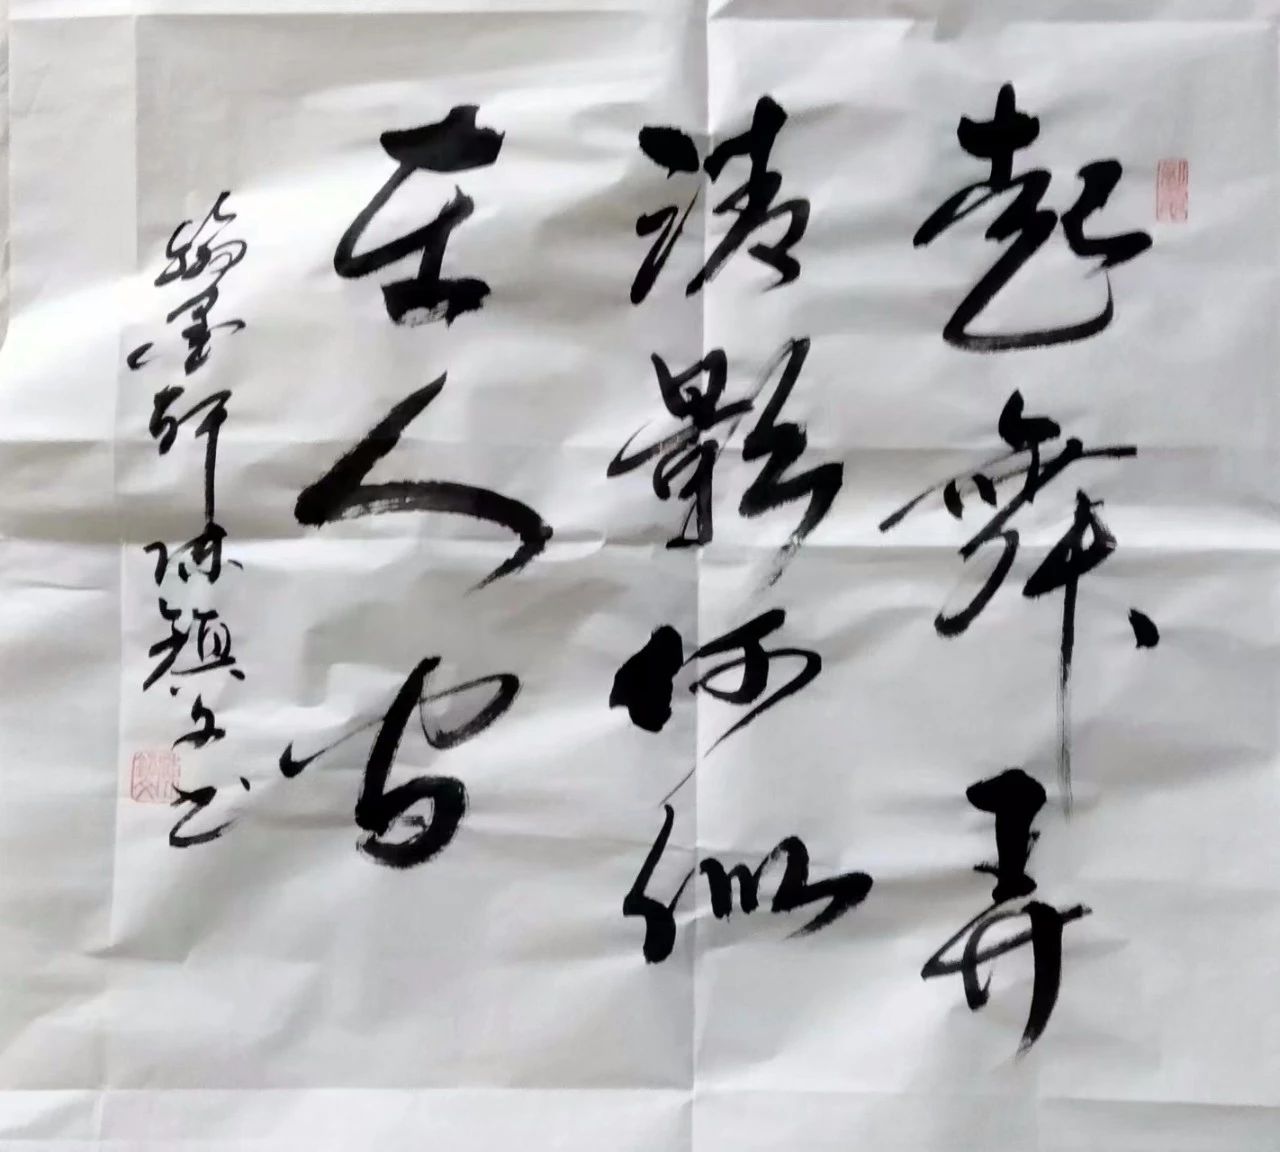 起舞弄
清影何似
在人间
翰墨轩陈镇文书